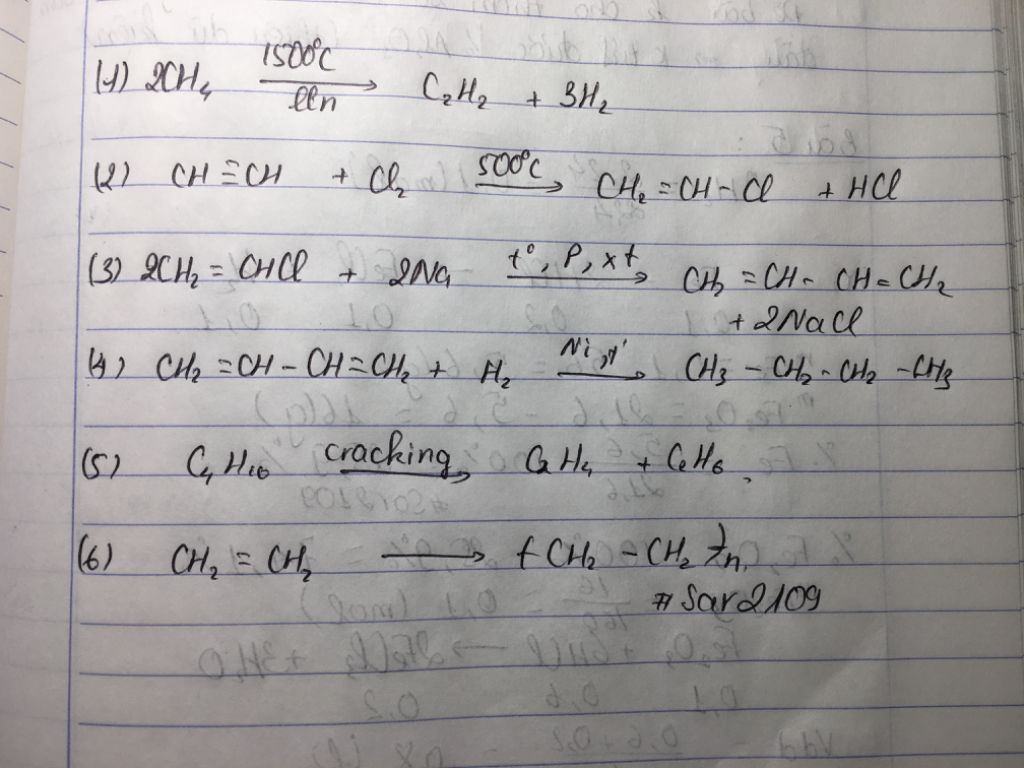 (1) 2CH4 1500°C lln → C2H2 + 3H2
(2) CH≡CH + Cl2 500°C → CH2=CH-Cl + HCl
(3) 2CH2=CHCl + 2Na t°, P, xt → CH2=CH-CH=CH2
+ 2NaCl
(4) CH2=CH-CH=CH2 + H2 Ni, t° → CH3-CH2-CH2-CH3
(5) C4H10 cracking → C2H4 + C2H6
(6) CH2=CH2 → (CH2-CH2)n
#Sar2109